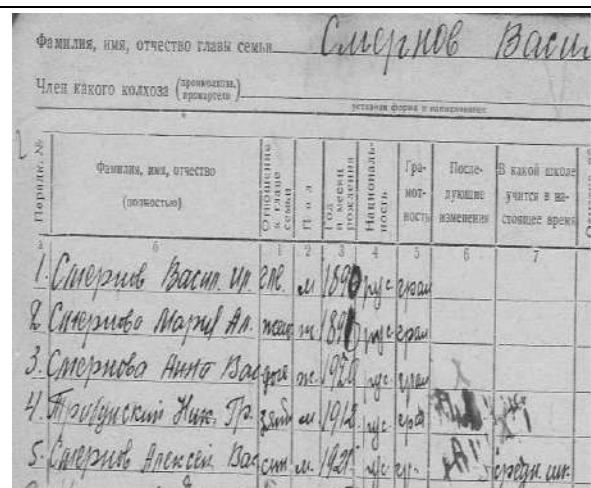 Фамилия, имя, отчество главы семьи Смернов Васи
Член какого колхоза (промколхоза, промартели)
уставная форма и наименование
Порядк. № Фамилия, имя, отчество (полностью) Отношение к главе семьи Пол Год и месяц рождения Националь-ность Гра-мот-ность После-дующие изменения В какой школе учится в на-стоящее время
а б 1 2 3 4 5 6 7
1. Смернов Васил. Ил. гл. м 1890 рус грам
2. Смернова Мария Ал. жена ж 1891 рус грам
3. Смернова Анна Вас дочь ж. 192 рус грам
4. Ник. Гр. зять м. 1918 рус гра
5. Смернов Алексей Вас сын м. 192 рус гр. средн. шк.